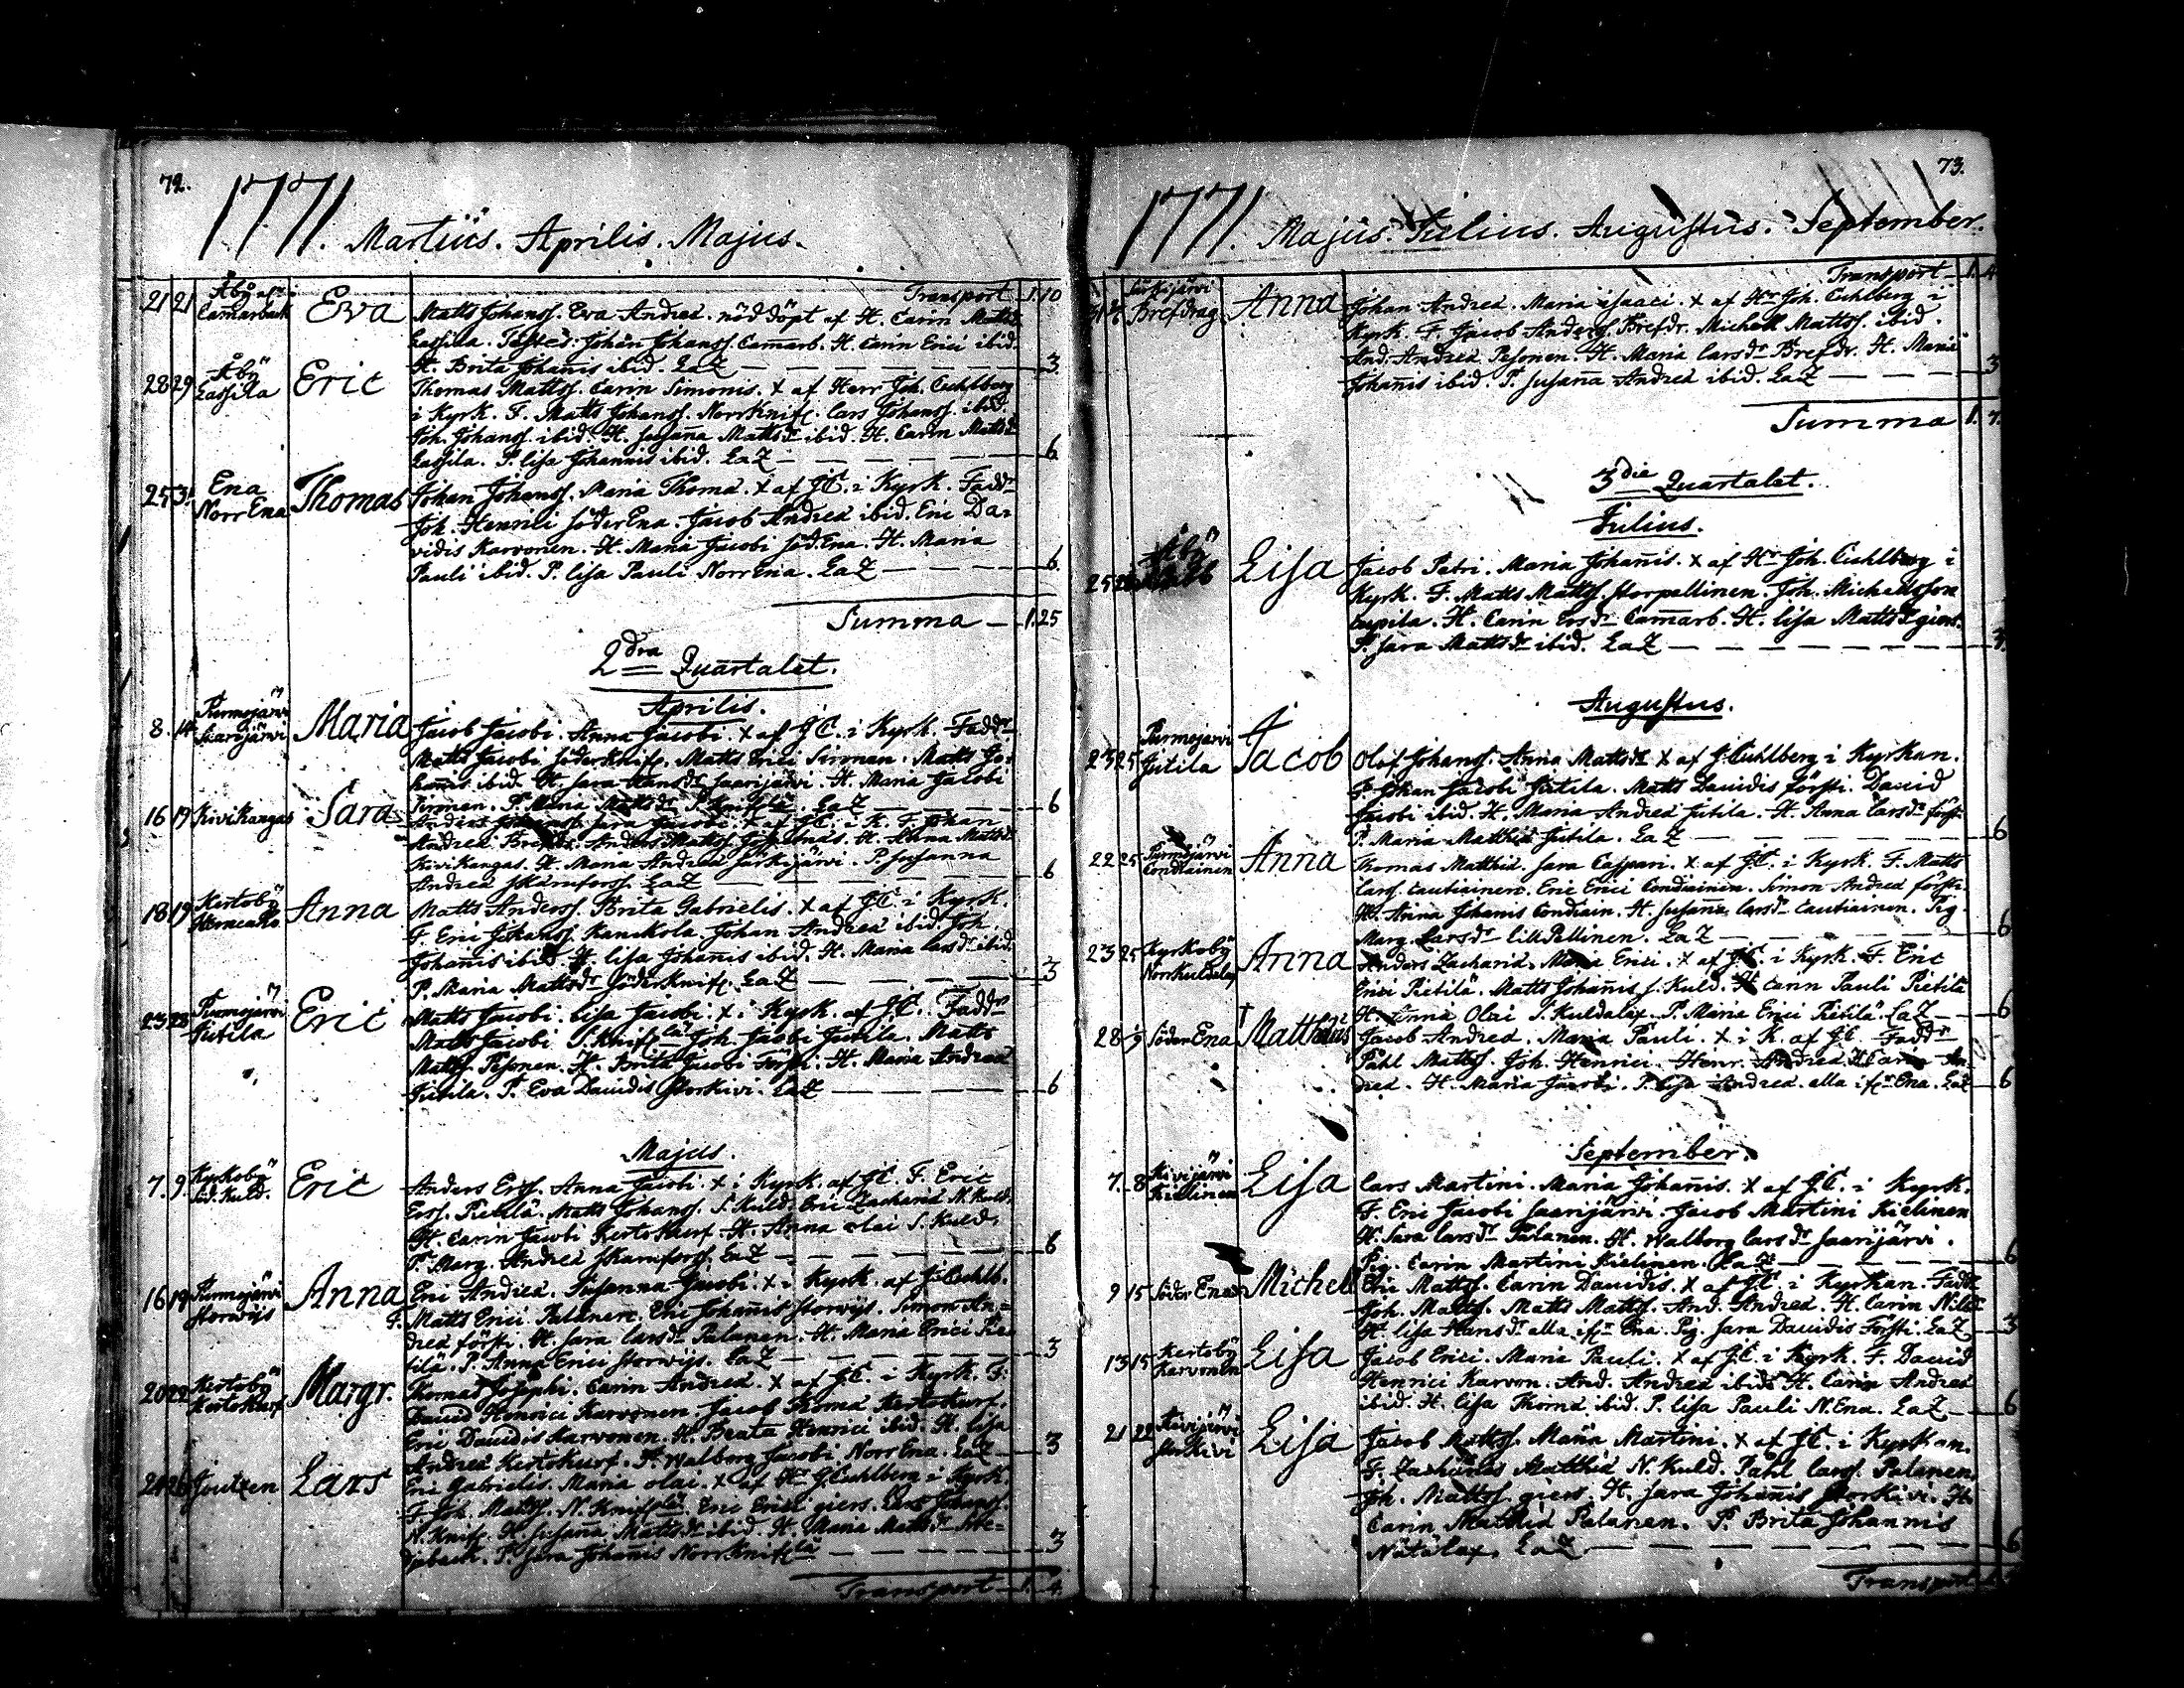 72.
1771. Martiüs. Aprilis. Majus.
Transport 1.10
21 21 Åbÿ Camarback Eva Matts Johanss. Eva Andreæ. nöd döpt af H. Carin Matts
Lassila. Testes. Johan Johanss. Camarb. H. Carin Erici ibid.
H. Brita Johanis ibid. LaZ 3
28 29 Åbÿ Lassila Eric Thomas Mattss. Carin Simonis. x af Herr Joh. Cuhlberg
i Kyrk. F. Matts Johanss. Norrknif. Lars Johanss. ibid.
Joh. Johanss. ibid. H. Susana Matts dr ibid. H. Carin Matts dr
Lassila. P. Lisa Johannis ibid. LaZ 6
25 31 Ena Norr Ena Thomas Johan Johanss. Maria Thomæ. x af J.C. i Kyrk. Fadd r
Joh. Henrici SöderEna. Jacob Andreæ ibid. Eric Da-
vidis Karvonen. H. Maria Jacobi Söd.Ena. H. Maria
Pauli ibid. P. Lisa Pauli NorrEna. LaZ 6
Summa 1.25
2 dra Quartalet.
Aprilis.
8. 14 Purmojärvi Saarijärvi Maria Jacob Jacobi. Anna Jacobi. x af J.C. i Kyrk. Fadd r
Matts Jacobi Söderknif. Matts Erici Sironen. Matts Jo-
hanis ibid. H. Sara Hans dr Saarijärvi. H. Maria Jacobi
Sironen. P. Maria Matts dr S.Knif lä. LaZ 6
16 19 Kivikangas Sara Anders Johanss. Sara Jacobi. x af J.C. i K. F. Johan
Andreæ Brefdr. Anders Mattss. H. Anna Matts dr
Kivikangas. H. Maria Andreæ Särkijärvi. P. Susanna
Andreæ Skamforss. LaZ 6
18 19 Kertobÿ Anna Matts Anderss. Brita Gabrielis. x af J.C. i Kyrk.
F. Eric Johanss. Kanckola. Johan Andreæ ibid. Joh.
Johanis ibid. H. Lisa Johanis ibid. H. Maria Lars dr ibid.
P. Maria Matts dr Söderknif. LaZ 3
23 28 Purmojärvi Jutila Eric Matts Jacobi. Lisa Jacobi. x i Kyrk. af J.C. Fadd r
Matts Jacobi S.Knif lä Joh. Jacobi Jutila. Matts
Mattss. Pesonen. H. Brita Jacobi Forsti. H. Maria Andreæ
Jutila. P. Eva Davidis Storkivi. LaZ 6
Majus.
7. 9. Kyrkobÿ Söd. Kuld. Eric Anders Erss. Anna Jacobi. x i Kyrk. af J.C. F. Eric
Erss. Pietilä. Matts Johanss. S.Kuld. Eric Zachariæ N.Kuld.
H. Carin Jacobi Kertokurf. H. Anna Olai S.Kuld.
P. Marg. Andreæ Skamforss. LaZ 6
16 19 Purmojärvi Storwijs Anna Eric Andreæ. Susanna Jacobi. x i Kyrk. af J. Cuhlb.
F. Matts Erici Palanen. Eric Johanis Storwijs. Simon An-
dreæ Försti. H. Sara Lars dr Palanen. H. Maria Erici Pie-
tilä. P. Anna Erici Storwijs. LaZ 3
20 22 Kertobÿ Kertokurf. Margr. Thomas Josephi. Carin Andreæ. x af J.C. i Kyrk. F.
David Henrici Karvonen. Jacob Thomæ Kertokurf.
Eric Davidis Karvonen. H. Beata Henrici ibid. H. Lisa
Andreæ Kertokurf. P. Walborg Jacobi NorrEna. LaZ 3
26 Joutzen Lars Eric Gabrielis. Maria Olai. x af Hr J.Cuhlberg i Kyrk.
F. Joh. Mattss. N.Knif lä Eric Erici giers. Lars Johanss.
N.Knif. H. Susana Matts dr ibid. H. Maria Matts dr
back. P. Sara Johanis NorrKnif lä 3
Transport 1. 4.
73.
1771. Majus. Julius. Augustus. September.
Transport 1. 4
31 Särkijärvi Brefdrag. Anna Johan Andreæ. Maria Isaaci. x af Hr Joh. Cuhlberg i
Kyrk. F. Jacob Anderss. Brefdr. Michell Mattss. ibid.
And. Andreæ Pesonen. H. Maria Lars dr Brefdr. H. Maria
Johanis ibid. P. Susana Andreæ ibid. LaZ 3
Summa 1. 7.
3 die Quartalet.
Julius.
25 Åbÿ Lisa Jacob Petri. Maria Johanis. x af Hr Joh. Cuhlberg i
Kyrk. F. Matts Mattss. Storpellinen. Joh. Michellsson
H. Carin Ers dr Camarb. H. Lisa Matts dr giers.
P. Sara Matts dr ibid. LaZ 3.
Augustus.
23 25 Purmojärvi Jutila Jacob Olof Johanss. Anna Matts dr x af J.Cuhlberg i Kyrkan.
F. Johan Jacobi Jutila. Matts Davidis Försti. David
Jacobi ibid. H. Maria Andreæ Jutila. H. Anna Lars dr Först.
P. Maria Matthiæ Jutila. LaZ 6
22 25 Purmojärvi Condiainen Anna Thomas Matthiæ. Sara Caspari. x af J.C. i Kyrk. F. Matts
Larss. Cautiainen. Eric Erici Condiainen. Simon Andreæ Försti.
H. Anna Johanis Condiain. H. Susana Lars dr Cautiainen. Pig.
Marg. Lars dr LillPellinen. LaZ 6
23 25 Kyrkobÿ Norrkuldalax Anna Anders Zachariæ. Maria Erici. x af J.C. i Kyrk. F. Eric
Erici Pietilä. Matts Johanis S.Kuld. H. Carin Pauli Pietilä
H. Anna Olai S.Kuldalax. P. Maria Erici Pietilä. LaZ 6
28 1/9 Söder Ena † Matthias Jacob Andreæ. Maria Pauli. x i K. af J.C. Fadd r
Påhl Mattss. Joh. Henrici. Henr. Andreæ. H. Carin An-
dreæ. H. Maria Jacobi. P. Lisa Andreæ. alla if r Ena. LaZ 6
September.
7. 8 Kivijärvi Kielinen Lisa Lars Martini. Maria Johanis. x af J.C. i Kyrk.
F. Eric Jacobi Saarijärvi. Jacob Martini Kielinen
H. Sara Lars dr Palanen. H. Walborg Lars dr Saarijärvi.
Pig. Carin Martini Kielinen. LaZ 6
9 15 Söder Ena Michell Eric Mattss. Carin Davidis. x af J.C. i Kyrkan. Fadd r
Joh. Mattss. Matts Mattss. And. Andreæ. H. Carin Nils dr
H. Lisa Hans dr alla if r Ena. Pig. Sara Davidis Forsti. LaZ 3
13 15 Kertobÿ Karvonen Lisa Jacob Erici. Maria Pauli. x af J.C. i Kyrk. F. David
Henrici Karvon. And. Andreæ ibid. H. Carin Andreæ
ibid. H. Lisa Thomæ ibid. P. Lisa Pauli N.Ena. LaZ 6
21 22 Kivijärvi Storkivi Lisa Jacob Mattss. Maria Martini. x af J.C. i Kyrkan.
F. Zacharias Matthiæ N.Kuld. Påhl Larss. Palanen.
Joh. Mattss. giers. H. Sara Johanis Storkivi. H.
Carin Matthiæ Palanen. P. Brita Johannis
Nätälax. LaZ 6
Transport